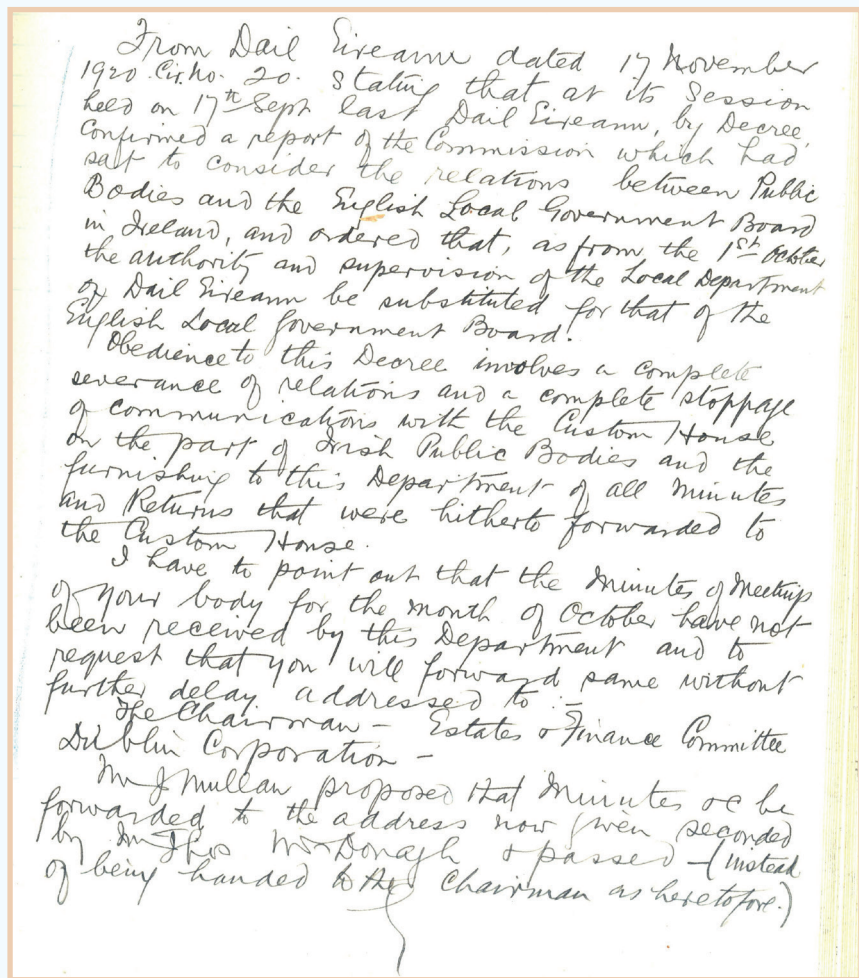 From Dail Eireann dated 17 November
1920. Cir. No. 20. Stating that at its Session
held on 17th Sept last Dail Eireann, by Decree,
confirmed a report of the Commission which had
sat to consider the relations between Public
Bodies and the English Local Government Board
in Ireland, and ordered that, as from the 1st October
the authority and supervision of the Local Department
of Dail Eireann be substituted for that of the
English Local Government Board.
Obedience to this Decree involves a complete
severance of relations and a complete stoppage
of communications with the Custom House
on the part of Irish Public Bodies and the
furnishing to this Department of all Minutes
and Returns that were hitherto forwarded to
the Custom House.
I have to point out that the Minutes of Meetings
of your body for the month of October have not
been received by this Department and to
request that you will forward same without
further delay addressed to :-
The Chairman - Estates & Finance Committee
Dublin Corporation -
Mr J Mullan proposed that Minutes &c be
forwarded to the address now given seconded
by Mr Thos McDonagh & passed - (instead
of being handed to the Chairman as heretofore.)